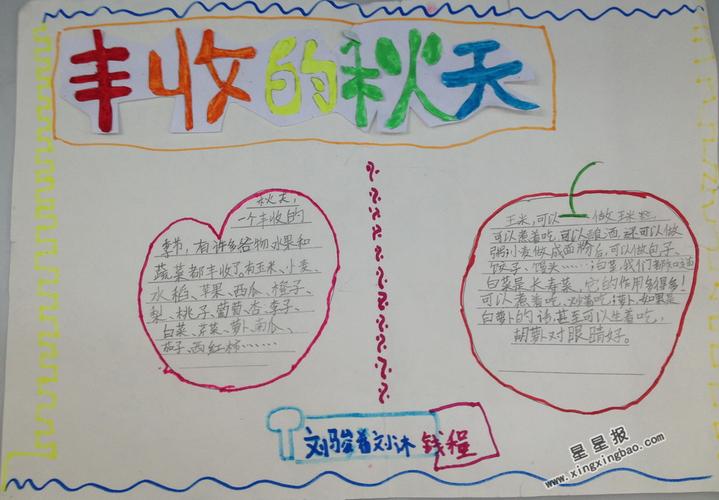 丰收的秋天
秋天,
一个丰收的
季节,有许多谷物水果和
蔬菜都丰收了有玉米、小麦、
水稻、苹果、西瓜、橙子、
梨、桃子、葡萄、杏、李子、
白菜、萝卜、南瓜、
茄子、西红柿……
玉米,可以 做
可以煮着吃,可以酿酒,还可以做
粥小麦做成面粉后,可以做包子、
饺子、馒头……白菜,我们都知道
白菜是长寿菜,它的作用多得多!
可以煮着吃、炒着吃萝卜,如果是
白萝卜的话甚至可以生着吃,
胡萝卜对眼睛好。
刘骏 刘沐 钱程
星星报
www.xingxingbao.com